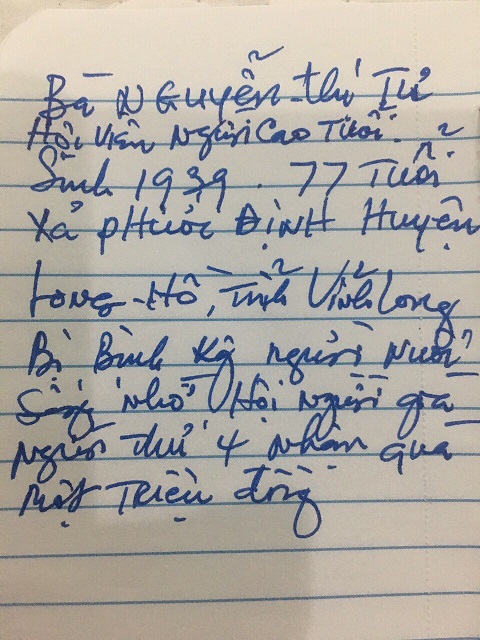 Bà NGUYỄN thị Tư
Hội Viên Người Cao Tuổi.
Sinh 1939. 77 Tuổi
Xã PHƯỚC ĐỊNH Huyện
LONG-Hồ, Tỉnh Vĩnh Long
Bị Bệnh người Nuôi
Sống nhờ Hội Người già
Người thứ 4 Nhận quà
Một Triệu đồng